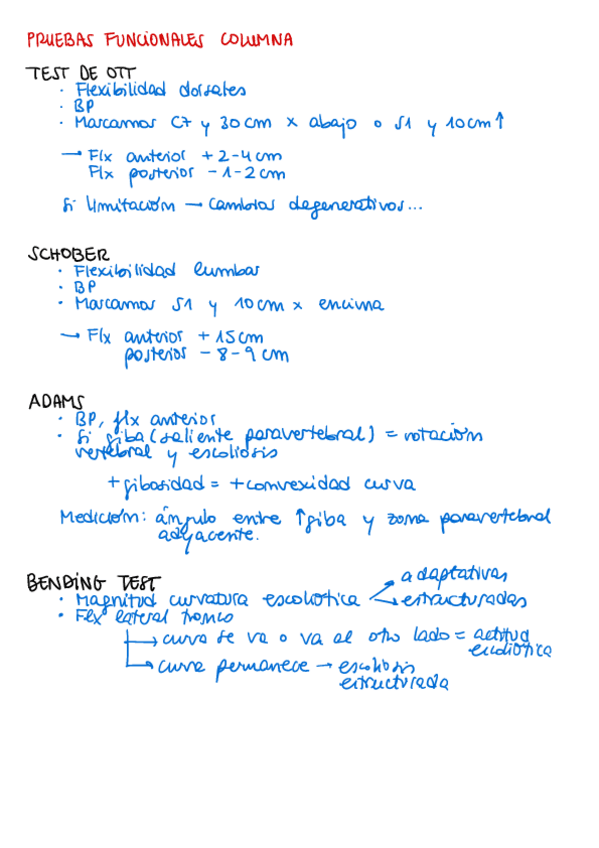 PRUEBAS FUNCIONALES COLUMNA
TEST DE OTT
· Flexibilidad dorsales
· BP
· Marcamos C7 y 30cm x abajo o S1 y 10cm↑
→ Flx anterior +2-4cm
Flx posterior -1-2cm
Si limitación → cambios degenerativos...
SCHOBER
· Flexibilidad lumbar
· BP
· Marcamos S1 y 10cm x encima
→ Flx anterior +15cm
posterior -8-9cm
ADAMS
· BP, flx anterior
· Si giba (saliente paravertebral) = rotación
vertebral y escoliosis
+gibosidad = +convexidad curva
Medición: ángulo entre ↑giba y zona paravertebral
adyacente.
BENDING TEST
adaptativas
· Magnitud curvatura escoliótica
estructuradas
· Flx lateral tronco
→ curva se va o va al otro lado = actitud
escoliótica
→ curva permanece → escoliosis
estructurada